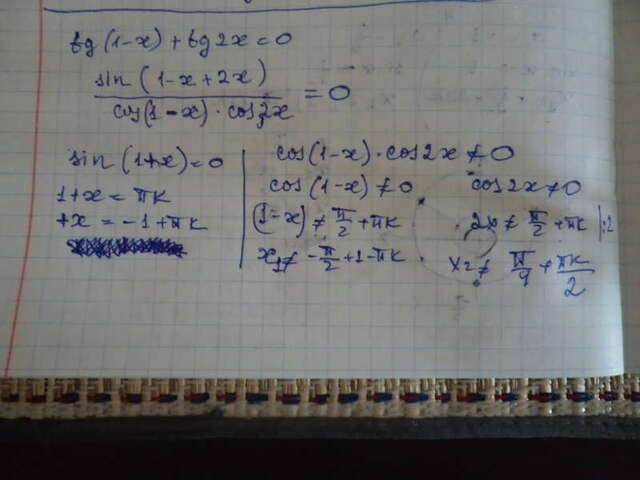 tg(1-x)+tg2x=0
sin(1-x+2x)
cos(1-x)·cos2x
=0
sin(1+x)=0
1+x=πk
+x=-1+πk
cos(1-x)·cos2x≠0
cos(1-x)≠0 cos2x≠0
(1-x)≠π/2+πk 2x≠π/2+πk |:2
x₁≠-π/2+1-πk x₂≠π/4+πk/2